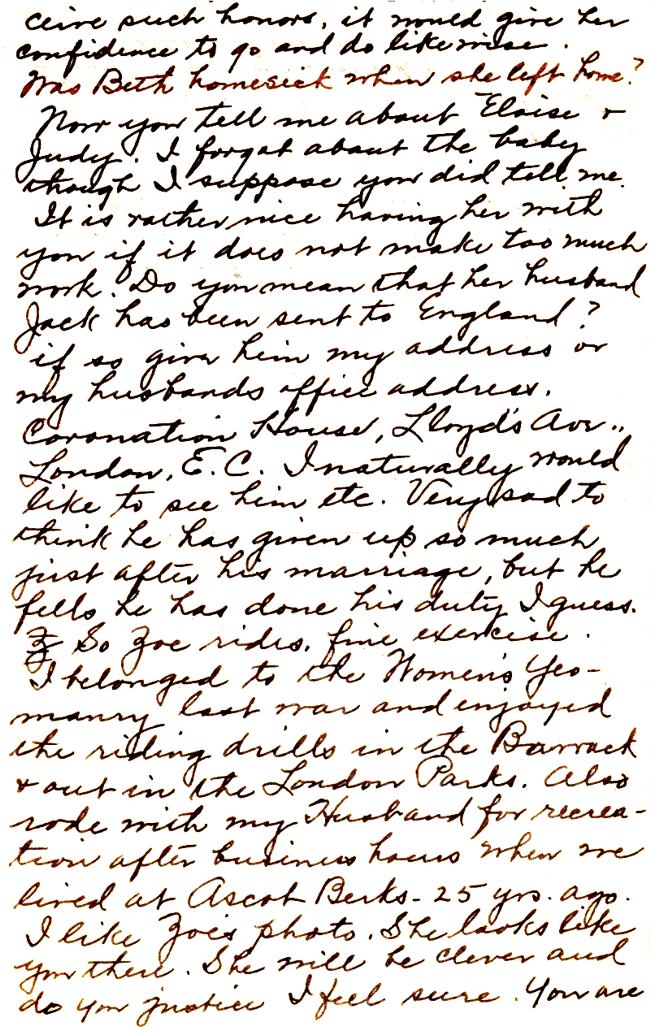 ceive such honors, it would give her
confidence to go and do likewise.
Was Beth homesick when she left home?
Now you tell me about Eloise &
Judy. I forgot about the baby
though I suppose you did tell me.
It is rather nice having her with
you if it does not make too much
work. Do you mean that her husband
Jack has been sent to England?
if so give him my address or
my husbands office address.
Coronation House, Lloyd's Ave.,
London, E.C. I naturally would
like to see him etc. Very sad to
think he has given up so much
just after his marriage, but he
fells he has done his duty I guess.
So Zoe rides. fine exercise.
I belonged to the Women's Yeo-
manry last war and enjoyed
the riding drills in the Barrack
& out in the London Parks. Also
rode with my Husband for recrea-
tion after business hours when we
lived at Ascot Berks - 25 yrs. ago.
I like Zoe's photo. She looks like
you there. She will be clever and
do you justice I feel sure. You are